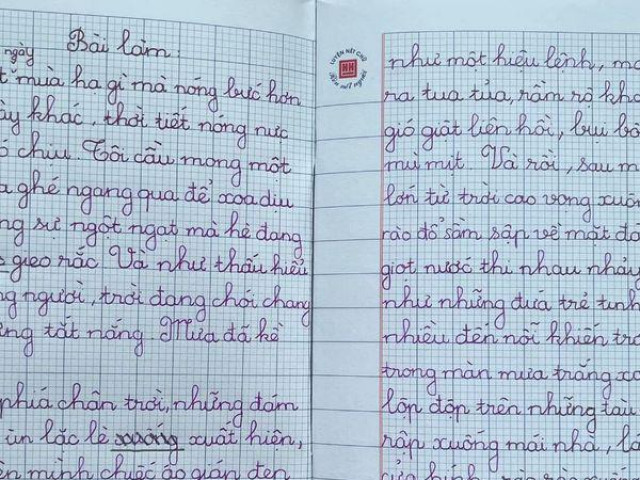 Bài làm:
ngày
mùa hạ gì mà nóng bức hơn
khác, thời tiết nóng nực
chịu. Tôi cầu mong một
ghé ngang qua để xoa dịu
sự ngột ngạt mà hè đang
gieo rắc. Và như thấu hiểu
người, trời đang chói chang
tắt nắng. Mưa đã kề
phía chân trời, những đám
ùn lắc lè xuống xuất hiện,
mình chiếc áo giáp đen
LUYỆN NÉT CHỮ
RÈN NẾT NGƯỜI
như một hiệu lệnh,
ra tua tủa, rầm rộ
gió giật liên hồi, bụi
mù mịt. Và rồi, sau
lớn từ trời cao vọng
rào đổ sầm sập về mặt
giọt nước thi nhau nhảy
như những đứa trẻ
nhiều đến nỗi khiến
trong màn mưa trắng
lộp độp trên những tàu
rập xuống mái nhà,